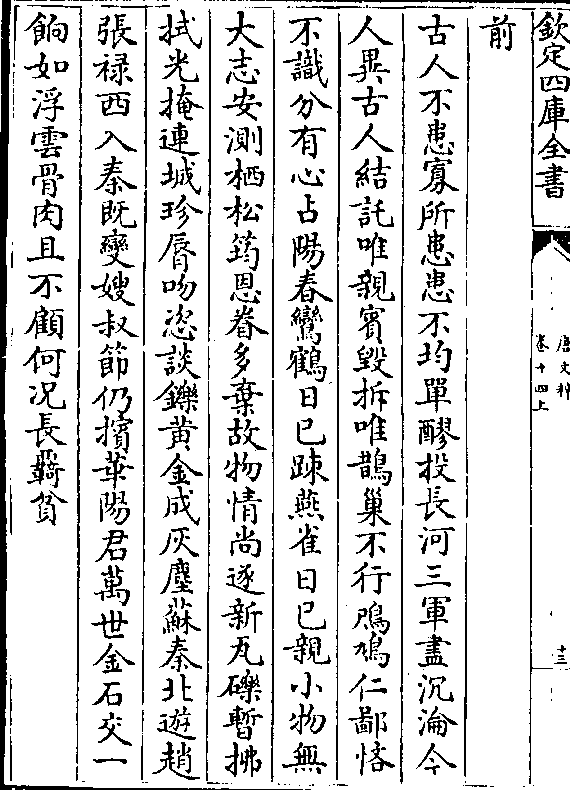 欽定四庫全書
唐文粹
卷十四上
十三
前
古人不患寡所患患不均單醪投長河三軍盡沉淪今
人異古人結託唯親賓毀拆唯鵲巢不行鳲鳩仁鄙悋
不識分有心占陽春鸞鶴日已踈燕雀日已親小物無
大志安測栖松筠恩眷多棄故物情尚逐新瓦礫暫拂
拭光掩連城珍脣吻恣談鑠黄金成灰塵蘇秦北遊趙
張禄西入秦既變嫂叔節仍擯華陽君萬世金石交一
餉如浮雲骨肉且不顧何况長羇貧